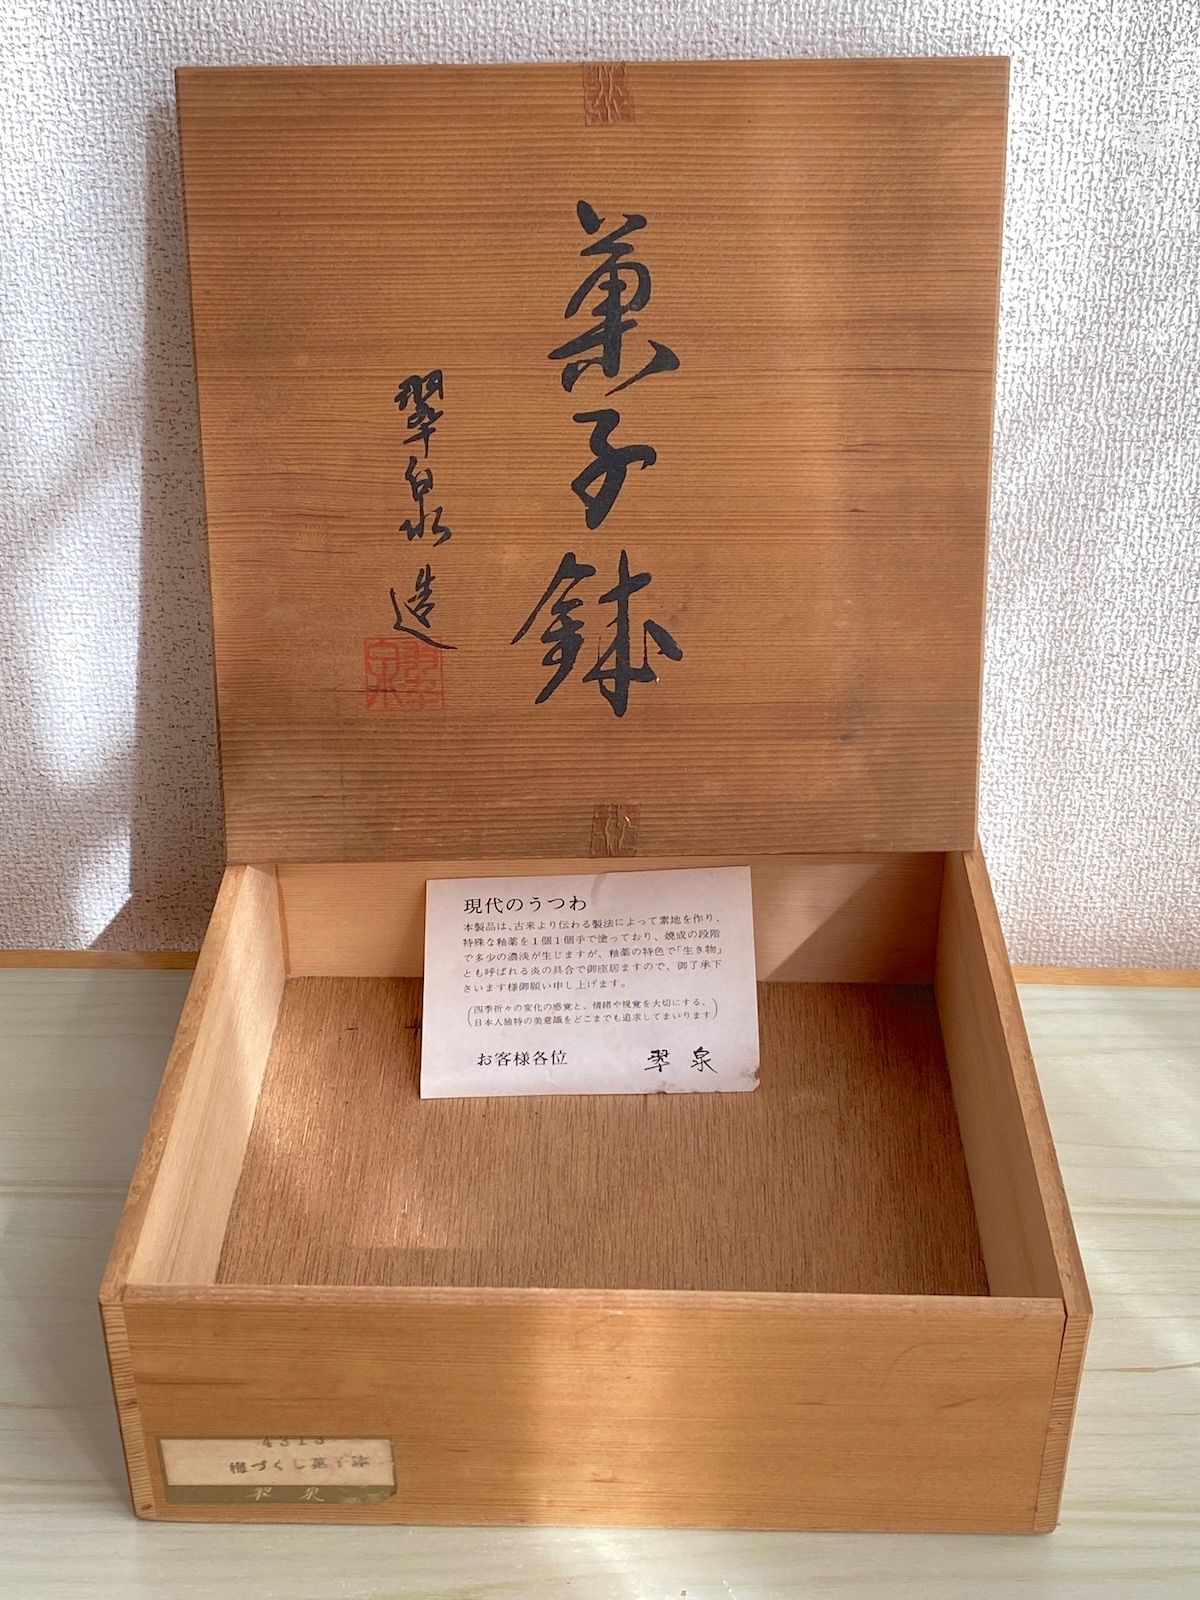 菓子鉢
翠泉造
翠泉
現代のうつわ
本製品は、古来より伝わる製法によって素地を作り、
特殊な釉薬を1個1個手で塗っており、焼成の段階
で多少の濃淡が生じますが、釉薬の特色で「生き物」
とも呼ばれる炎の具合で御座居ますので、御了承下
さいます様御願い申し上げます。
(四季折々の変化の感覚と、情緒や視覚を大切にする、
日本人独特の美意識をどこまでも追求してまいります)
お客様各位 翠泉
4313
梅づくし菓子鉢
翠泉